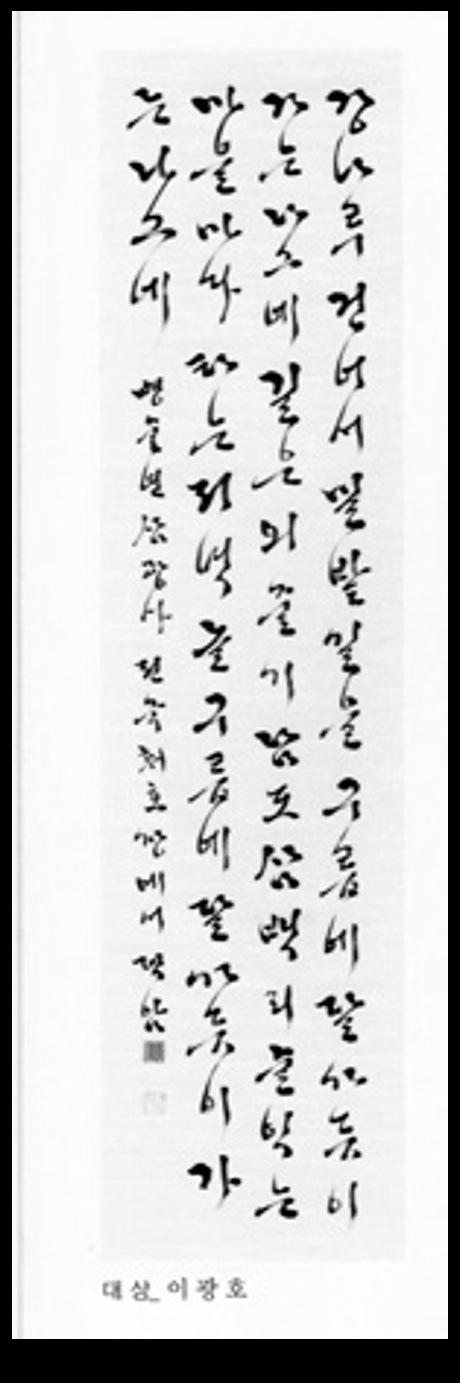 강나루 건너서 밀밭 길을 구름에 달 가듯이
가는 나그네 길은 외줄기 남도 삼백 리 술 익는
마을마다 타는 저녁놀 구름에 달 가듯이 가
는 나그네 병술년 삼광사 전국휘호장에서
대상_ 이광호